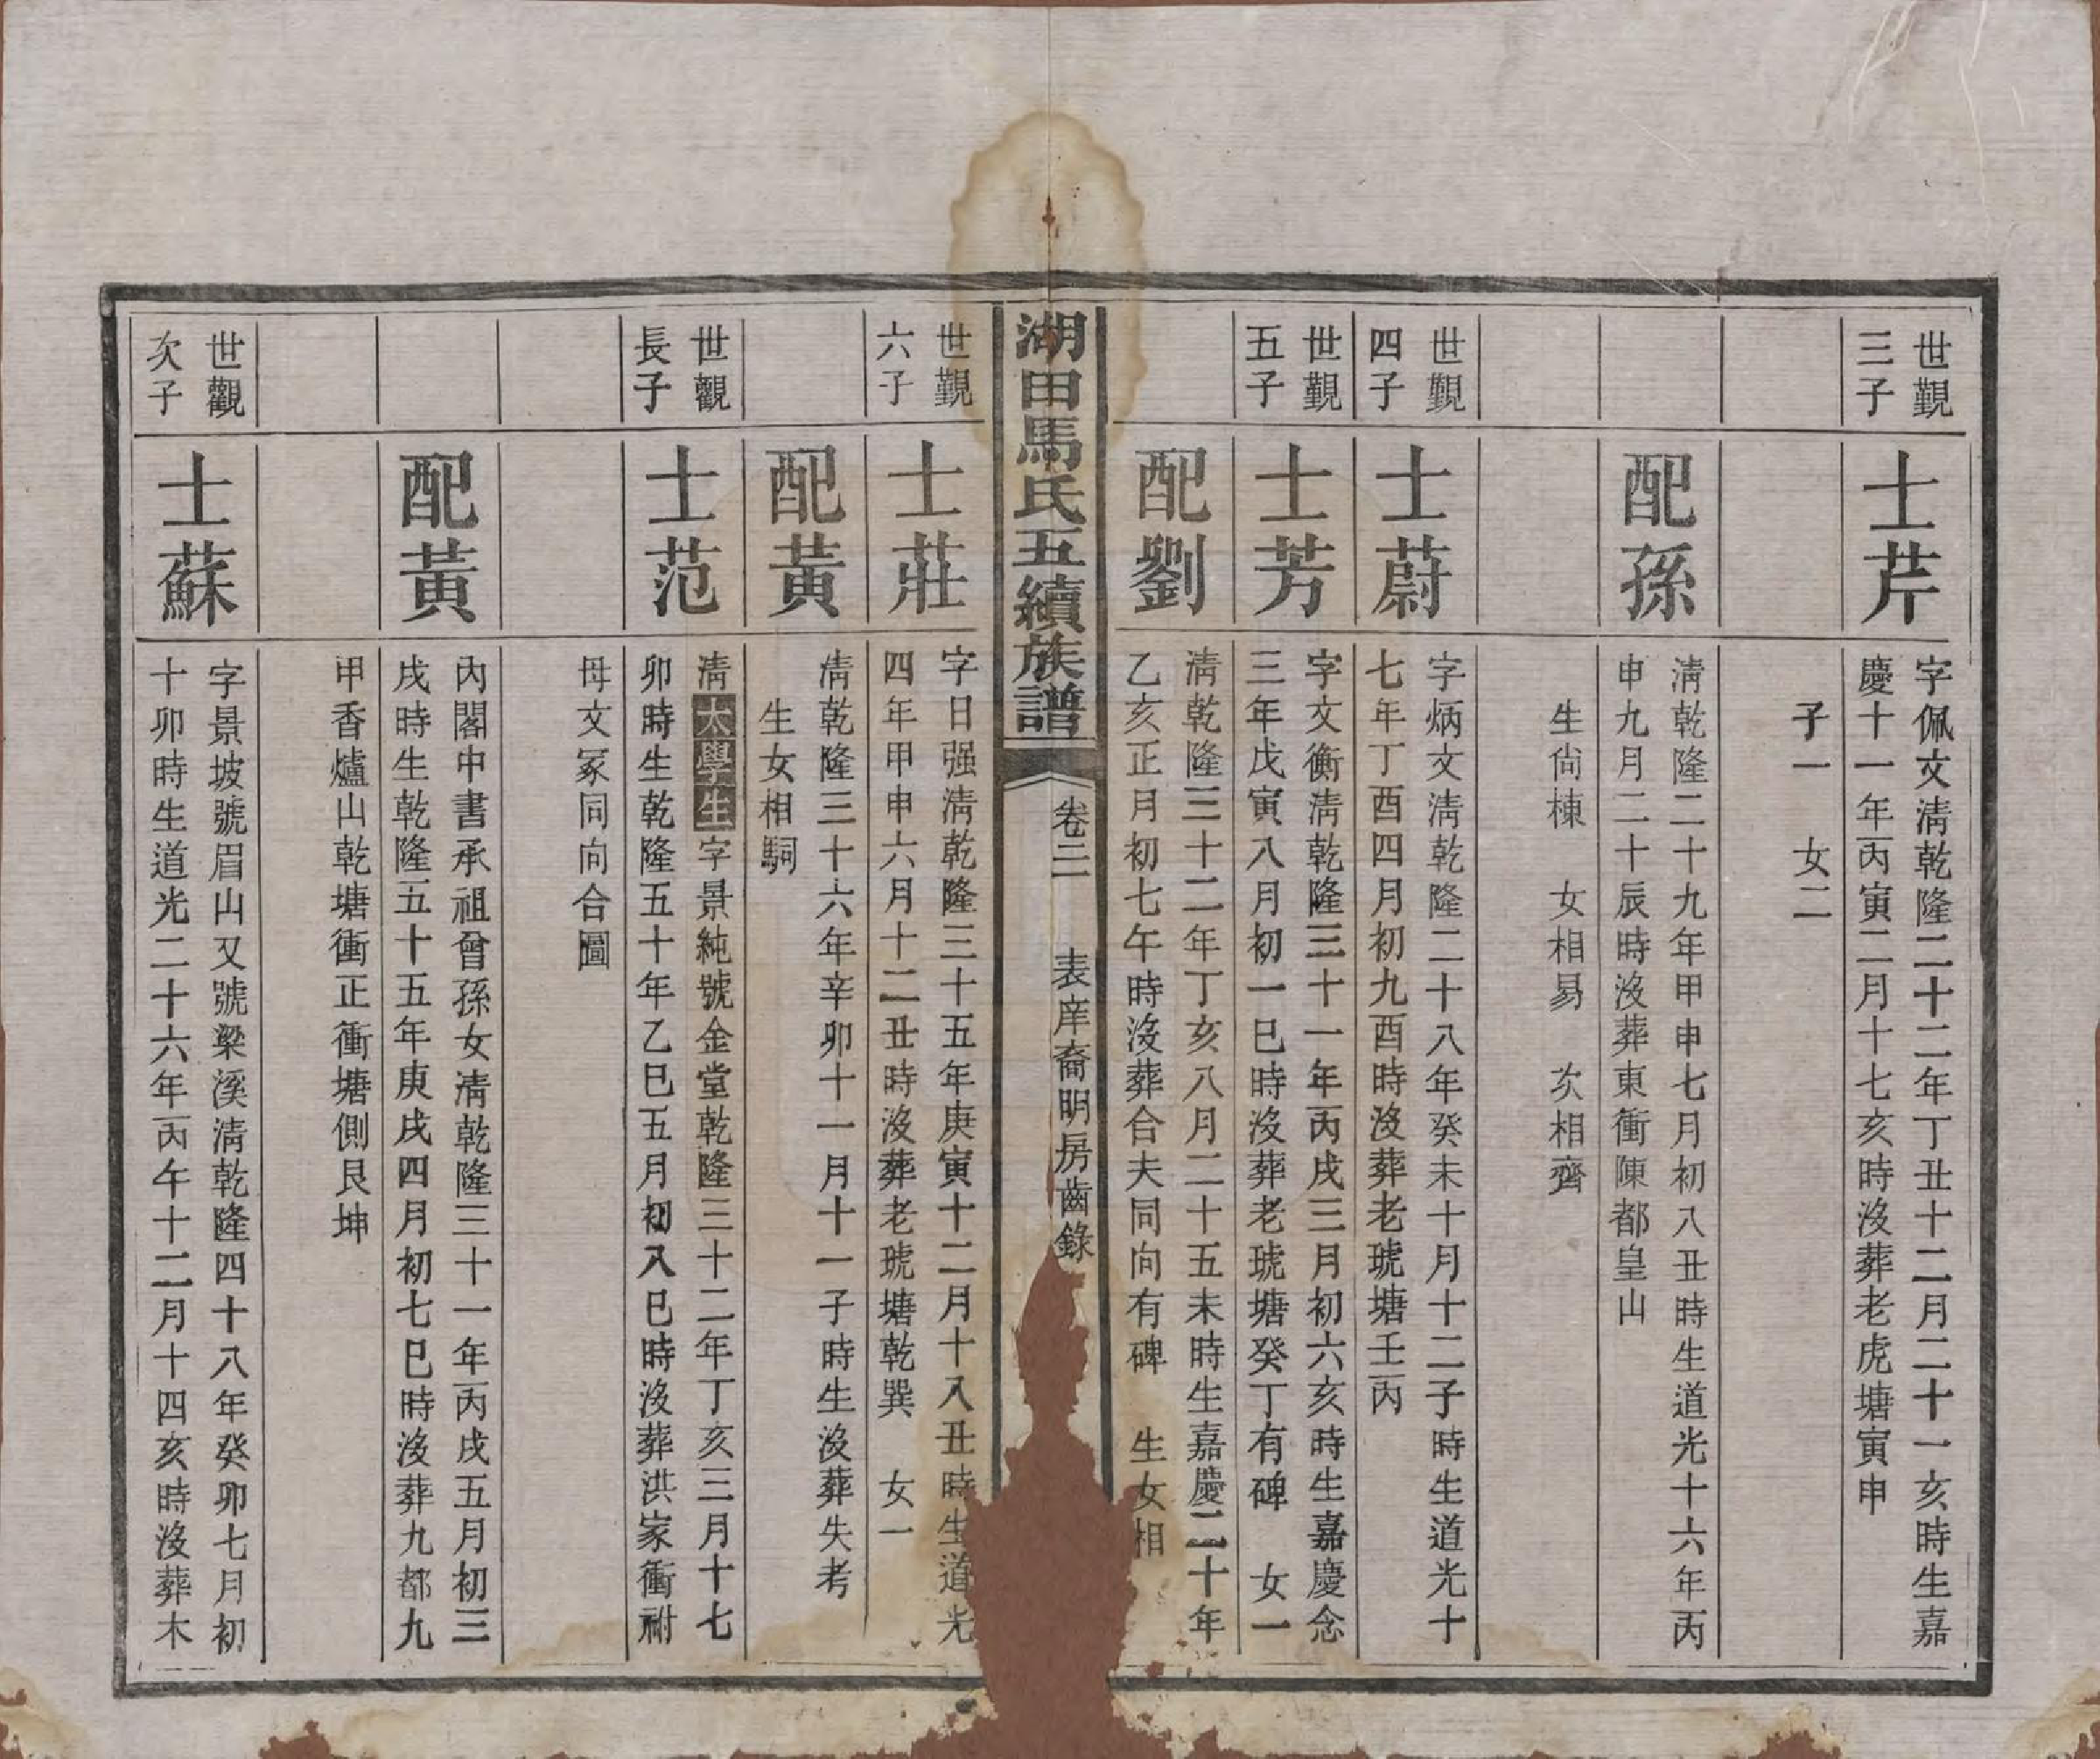 世覲
三子
士芹
字佩文淸乾隆二十二年丁丑十二月二十一亥時生嘉
慶十一年丙寅二月十七亥時沒葬老虎塘寅申
子一　女二
配孫
淸乾隆二十九年甲申七月初八丑時生道光十六年丙
申九月二十辰時沒葬東衝陳都皇山
生尙棟　女相易　次相齊
世覲
四子
士蔚
字炳文淸乾隆二十八年癸未十月十二子時生道光十
七年丁酉四月初九酉時沒葬老琥塘壬丙
世覲
五子
士芳
字文衡淸乾隆三十一年丙戌三月初六亥時生嘉慶念
三年戊寅八月初一巳時沒葬老琥塘癸丁有碑　女一
配劉
淸乾隆三十二年丁亥八月二十五未時生嘉慶二十年
乙亥正月初七午時沒葬合夫同向有碑　生女相
湖田馬氏五續族譜
卷二　表庠裔明房齒錄
世覲
六子
士莊
字日强淸乾隆三十五年庚寅十二月十八丑時生道光
四年甲申六月十二丑時沒葬老琥塘乾巽　女一
配黃
淸乾隆三十六年辛卯十一月十一子時生沒葬失考
生女相駉
世觀
長子
士范
淸太學生字景純號金堂乾隆三十二年丁亥三月十七
卯時生乾隆五十年乙巳五月初八巳時沒葬洪家衝祔
母文冢同向合圖
配黃
內閣中書承祖曾孫女淸乾隆三十一年丙戌五月初三
戌時生乾隆五十五年庚戌四月初七巳時沒葬九都九
甲香爐山乾塘衝正衝塘側艮坤
世觀
次子
士蘇
字景坡號眉山又號梁溪淸乾隆四十八年癸卯七月初
十卯時生道光二十六年丙午十二月十四亥時沒葬木